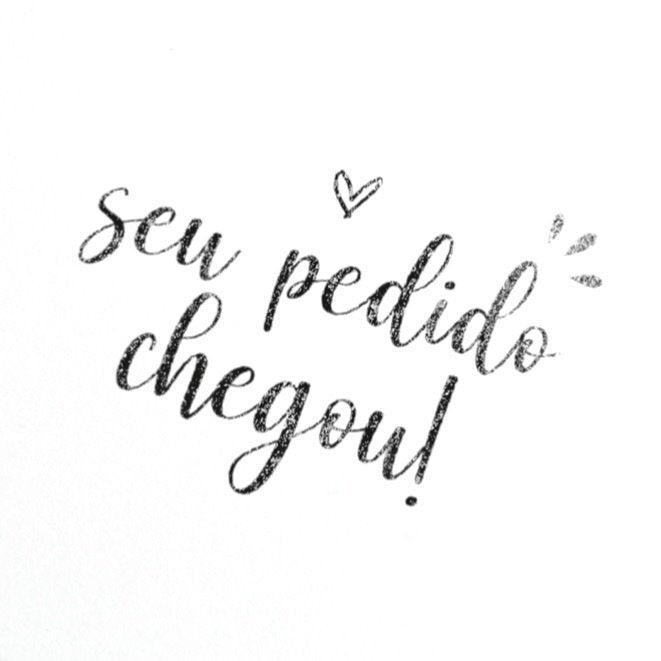 seu pedido
chegou!